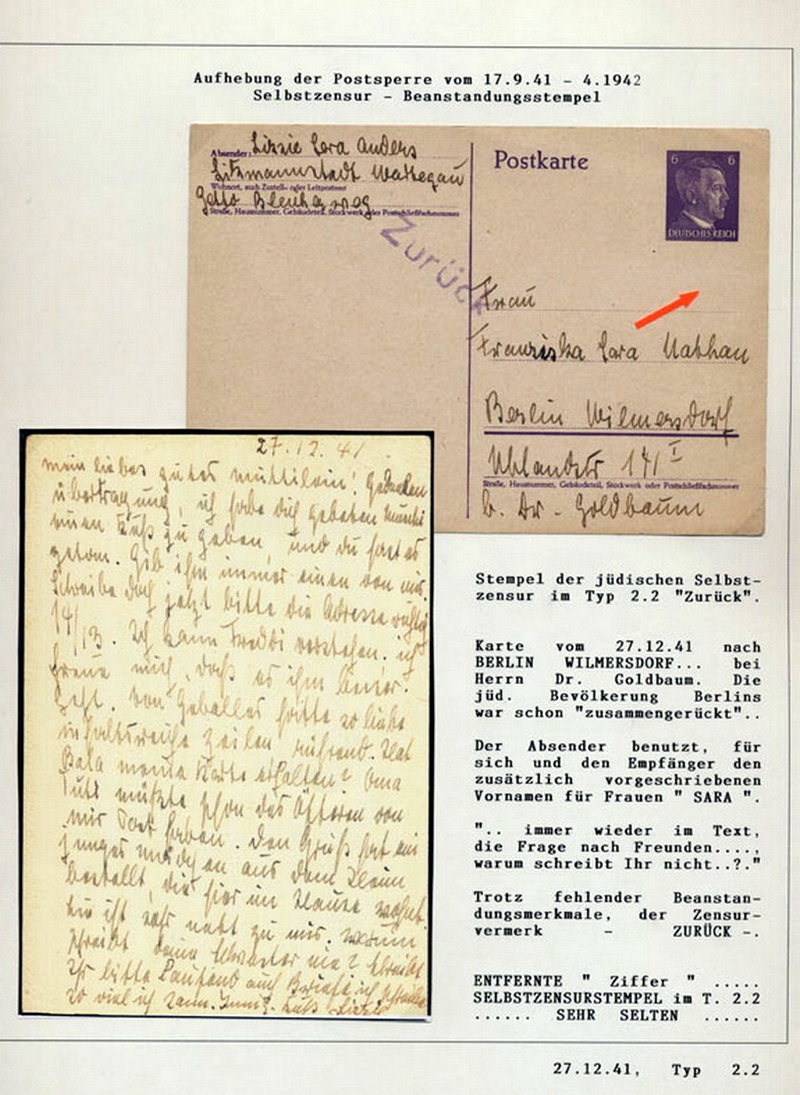 Aufhebung der Postsperre vom 17.9.41 - 4.1942
Selbstzensur - Beanstandungsstempel
Absender: Lizzie Sara Anders
Litzmannstadt Warthegau
Wohnort, auch Zustell- oder Leitpostamt
Getto
Straße, Hausnummer, Gebäudeteil, Stockwerk oder Postschließfachnummer
Zurück
Postkarte
6 6
DEUTSCHES REICH
Frau
Franziska Sara Nathan
Berlin Wilmersdorf
Uhlandstr 171 I
Straße, Hausnummer, Gebäudeteil, Stockwerk oder Postschließfachnummer
b. Dr. Goldbaum
27.12.41
mein liebes gutes Muttilein! Gedanken
übertragung, ich habe dich gebeten
einen Kuß zu geben, und du hast es
getan. Gib ihm immer einen von mir.
Schreibe doch jetzt bitte die Adresse richtig
14/13. Ich kann Freddi verstehen. ich
freue mich, daß es ihm besser
geht. von hatte so liebe
inhaltsreiche Zeilen, rührend. Hat
meine Karte erhalten? Oma
müßte schon des Öfteren von
mir Post haben. den Gruß hat ein
junges Mädchen aus dem Heim
bestellt, die hier im Hause wohnt.
Sie ist sehr nett zu mir. warum
schreibt deine Schwester nie? Schreibt
Ihr bitte laufend auch Briefe ich schreibe
so viel ich kann. Innig. Kuß
Stempel der jüdischen Selbst-
zensur im Typ 2.2 "Zurück".
Karte vom 27.12.41 nach
BERLIN WILMERSDORF... bei
Herrn Dr. Goldbaum. Die
jüd. Bevölkerung Berlins
war schon "zusammengerückt"..
Der Absender benutzt, für
sich und den Empfänger den
zusätzlich vorgeschriebenen
Vornamen für Frauen " SARA ".
".. immer wieder im Text,
die Frage nach Freunden....,
warum schreibt Ihr nicht..?."
Trotz fehlender Beanstan-
dungsmerkmale, der Zensur-
vermerk - ZURÜCK -.
ENTFERNTE " Ziffer " .....
SELBSTZENSURSTEMPEL im T. 2.2
...... SEHR SELTEN ......
27.12.41, Typ 2.2